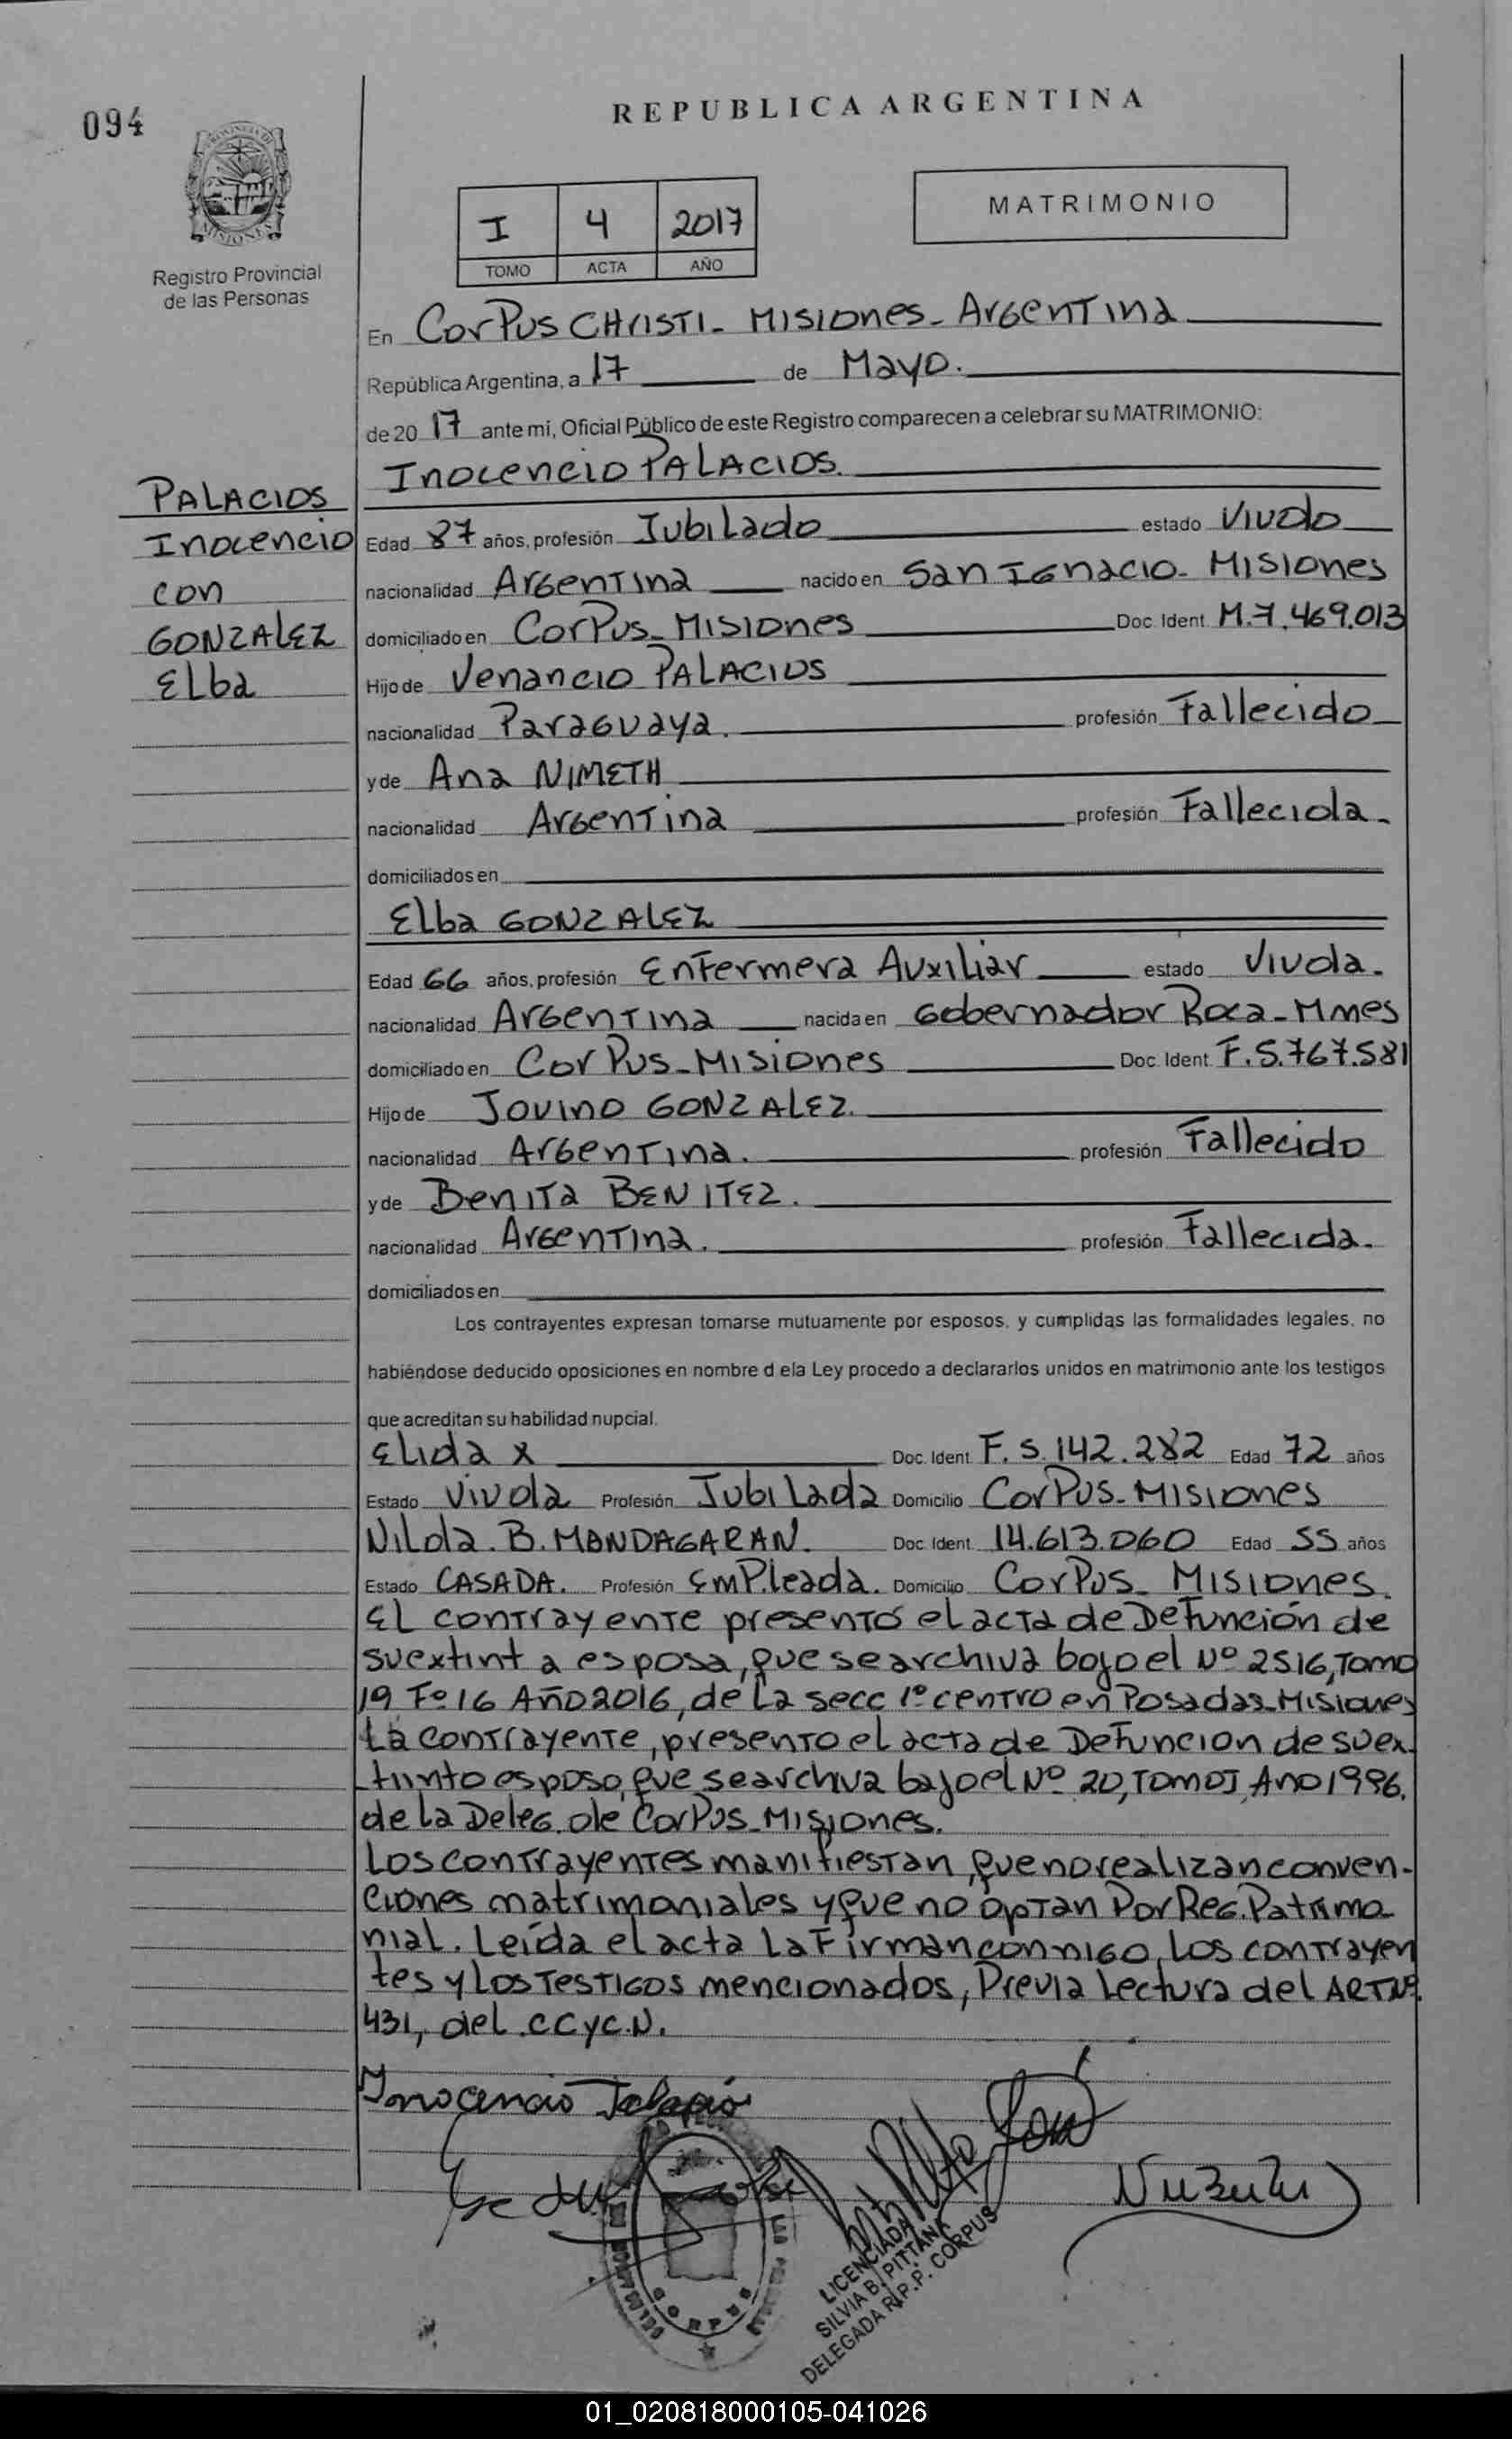 094
REPUBLICA ARGENTINA
I 4 2017
TOMO ACTA AÑO
MATRIMONIO
Registro Provincial
de las Personas
En Corpus CHRISTI - Misiones - Argentina
República Argentina, a 17 de Mayo.
de 20 17 ante mi, Oficial Público de este Registro comparecen a celebrar su MATRIMONIO:
Inocencio PALACIOS.
PALACIOS
Inocencio
con
GONZALEZ
Elba
Edad 87 años, profesión Jubilado estado Viudo
nacionalidad Argentina nacido en San Ignacio - Misiones
domiciliado en Corpus - Misiones Doc. Ident. M.7.469.013
Hijo de Venancio PALACIOS
nacionalidad Paraguaya. profesión Fallecido
y de Ana NIMETH
nacionalidad Argentina profesión Fallecida.
domiciliados en
Elba GONZALEZ
Edad 66 años, profesión Enfermera Auxiliar estado Viuda.
nacionalidad Argentina nacida en Gobernador Roca - Mnes
domiciliado en Corpus - Misiones Doc. Ident. F.5.767.581
Hijo de Jovino GONZALEZ.
nacionalidad Argentina. profesión Fallecido
y de Benita BENITEZ.
nacionalidad Argentina. profesión Fallecida.
domiciliados en
Los contrayentes expresan tomarse mutuamente por esposos, y cumplidas las formalidades legales, no
habiéndose deducido oposiciones en nombre d ela Ley procedo a declararlos unidos en matrimonio ante los testigos
que acreditan su habilidad nupcial.
Elida X Doc. Ident. F.5.142.282 Edad 72 años
Estado Viuda Profesión Jubilada Domicilio Corpus - Misiones
Nilda. B. MANDAGARAN. Doc. Ident. 14.613.060 Edad 55 años
Estado CASADA. Profesión Empleada. Domicilio Corpus - Misiones.
El contrayente presentó el acta de Defunción de
su extinta esposa, que se archiva bajo el Nº 2516, Tomo
19 Fº 16 Año 2016, de la secc 1º centro en Posadas - Misiones
La contrayente, presento el acta de Defuncion de su ex-
tinto esposo, que se archiva bajo el Nº 20, Tomo I, Año 1996.
de la Deleg. de Corpus - Misiones.
Los contrayentes manifiestan, que no realizan conven-
ciones matrimoniales y que no optan Por Reg. Patrimo
nial. Leída el acta La Firman conmigo, los contrayen
tes y Los Testigos mencionados, Previa Lectura del ART Nº.
431, del CCyC.N.
Inocencio Palacio
LICENCIADA
SILVIA B. PITTANA
DELEGADA R.P.P. CORPUS
CORPUS
01_020818000105-041026